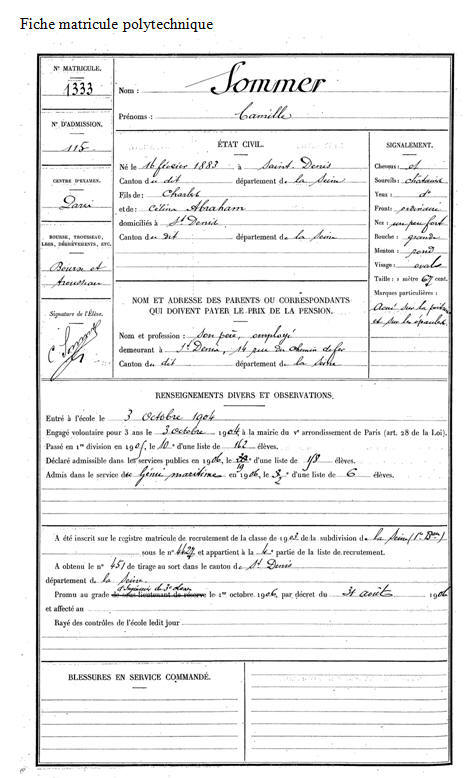 Fiche matricule polytechnique
N° MATRICULE.
1333
Nom : Sommer
Prénoms : Camille
N° D'ADMISSION.
115
CENTRE D'EXAMEN.
Paris
BOURSE, TROUSSEAU,
LEGS, DÉGRÈVEMENTS, ETC.
Bourse et
trousseau
Signature de l'Élève.
C. Sommer
ÉTAT CIVIL.
Né le 16 février 1883 à Saint Denis
Canton de dit département de la Seine
Fils de : Charles
et de : Célina Abraham
domiciliés à St Denis
Canton de dit département de la Seine
SIGNALEMENT.
Cheveux : et
Sourcils : châtains
Yeux : do
Front : ordinaire
Nez : un peu fort
Bouche : grande
Menton : rond
Visage : ovale
Taille : 1 mètre 67 cent.
Marques particulières :
Acné sur la poitrine
et sur les épaules
NOM ET ADRESSE DES PARENTS OU CORRESPONDANTS
QUI DOIVENT PAYER LE PRIX DE LA PENSION.
Nom et profession : son père, employé
demeurant à St Denis, 14 rue du chemin de fer
Canton de dit département de la Seine
RENSEIGNEMENTS DIVERS ET OBSERVATIONS.
Entré à l'école le 3 Octobre 1904
Engagé volontaire pour 3 ans le 3 octobre 1904 à la mairie du Ve arrondissement de Paris (art. 28 de la Loi).
Passé en 1re division en 1905, le 10e d'une liste de 162 élèves.
Déclaré admissible dans les services publics en 1906, le 19e d'une liste de élèves.
Admis dans le service du Génie maritime en 1906, le d'une liste de 6 élèves.
A été inscrit sur le registre matricule de recrutement de la classe de 1903 de la subdivision de la Seine (1er Bau)
sous le n° 4427 et appartient à la 4e partie de la liste de recrutement.
A obtenu le n° 451 de tirage au sort dans le canton de St Denis
département de la Seine.
Promu au grade d'Ingénieur de 3e classe de sous-lieutenant de réserve le 1er octobre 1906, par décret du 31 août 1906
et affecté au
Rayé des contrôles de l'école ledit jour
BLESSURES EN SERVICE COMMANDÉ.